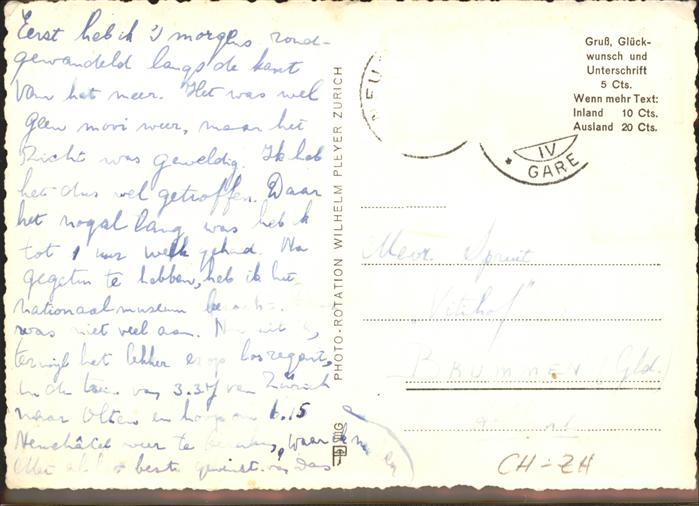 Eerst heb ik 's morgens rond-
gewandeld langs de kant
van het meer. Het was wel
geen mooi weer, maar het
zicht was geweldig. Ik heb
het dus wel getroffen. Daar
het nogal lang was heb ik
tot 1 uur werk gehad. Na
gegeten te hebben, heb ik het
nationaalmuseum
was niet veel aan. Nu zit ik,
terwijl het lekker erop losregent,
in de trein van 3.37 van Zürich
naar Olten en hoop om 6.15
Neuchâtel weer te waar
beste gewenst. Das
PHOTO-ROTATION WILHELM PLEYER ZURICH
Gruß, Glück-
wunsch und
Unterschrift
5 Cts.
Wenn mehr Text:
Inland 10 Cts.
Ausland 20 Cts.
NEU
IV
GARE
Mevr. Spruit
"Vitihof"
BRUMMEN (Gld.)
CH-ZH